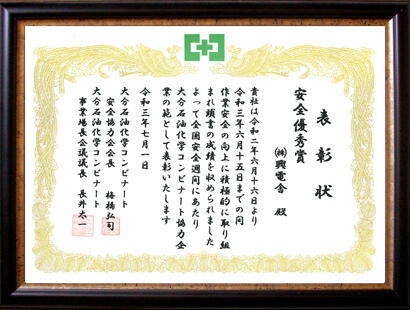 表彰状
安全優秀賞
㈱興電舎 殿
貴社は令和二年六月十六日より
令和三年六月十五日までの間
作業安全の向上に積極的に取り組
まれ頭書の成績を収められました
よって全国安全週間にあたり
大分石油化学コンビナート協力企
業の範として表彰いたします
令和三年七月一日
大分石油化学コンビナート
安全協力会会長 梅橋弘司
大分石油化学コンビナート
事業場長会議議長 長井太一